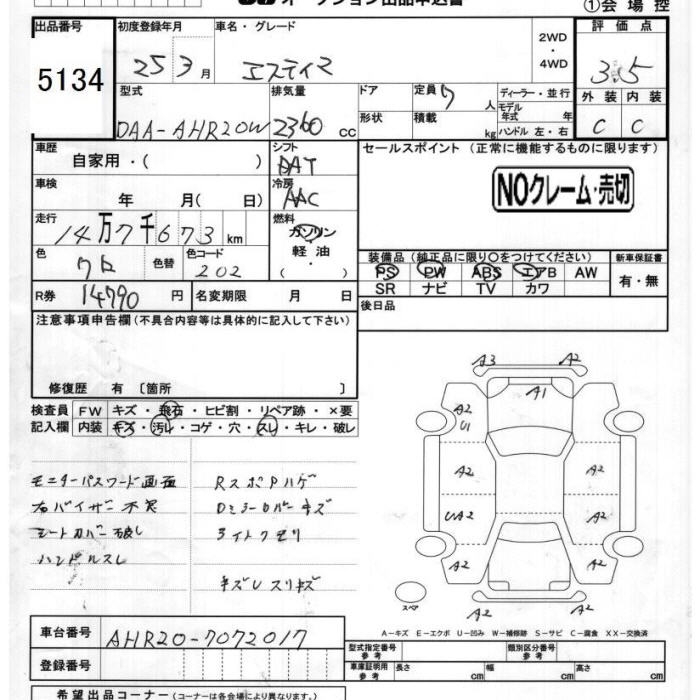 オークション出品申込書
①会場控
出品番号 5134
初度登録年月 25 3月
車名・グレード エスティマ
2WD・4WD
評価点 3.5
外装 C 内装 C
型式 DAA-AHR20W
排気量 2360 cc
ドア
形状
定員 7 人
積載 kg
ディーラー・並行
モデル年式 年
ハンドル 左・右
車歴 自家用・( )
シフト DAT
セールスポイント (正常に機能するものに限ります)
NOクレーム・売切
車検 年 月( 日)
冷房 AAC
走行 14万7千673 km
燃料 ガソリン 軽油・
色 クロ 色替
色コード 202
装備品 (純正品に限り○をつけてください)
PS PW ABS エアB AW
SR ナビ TV カワ
新車保証書 有・無
R券 14790 円
名変期限 月 日
後日品
注意事項申告欄 (不具合内容等は具体的に記入して下さい)
修復歴 有 〔箇所 〕
検査員記入欄
FW キズ・飛石・ヒビ割・リペア跡・×要
内装 キズ・汚レ・コゲ・穴・スレ・キレ・破レ
モニターパスワード画面
右バイザー不良
シートカバー破レ
ハンドルスレ
RスポPハゲ
Dミラーカバーキズ
ライトクモリ
キズレスリキズ
A3 A2
A1
A2
U1
A2 A2
UA2 A2
A2 A2
A2 A2
スペア
A-キズ E-エクボ U-凹み W-補修跡 S-サビ C-腐食 XX-交換済
車台番号 AHR20-7072017
登録番号
型式指定番号 参考
類別区分番号 参考
車庫証明用 参考 長さ cm 幅 cm 高さ cm
希望出品コーナー (コーナーは各会場により異なります。)